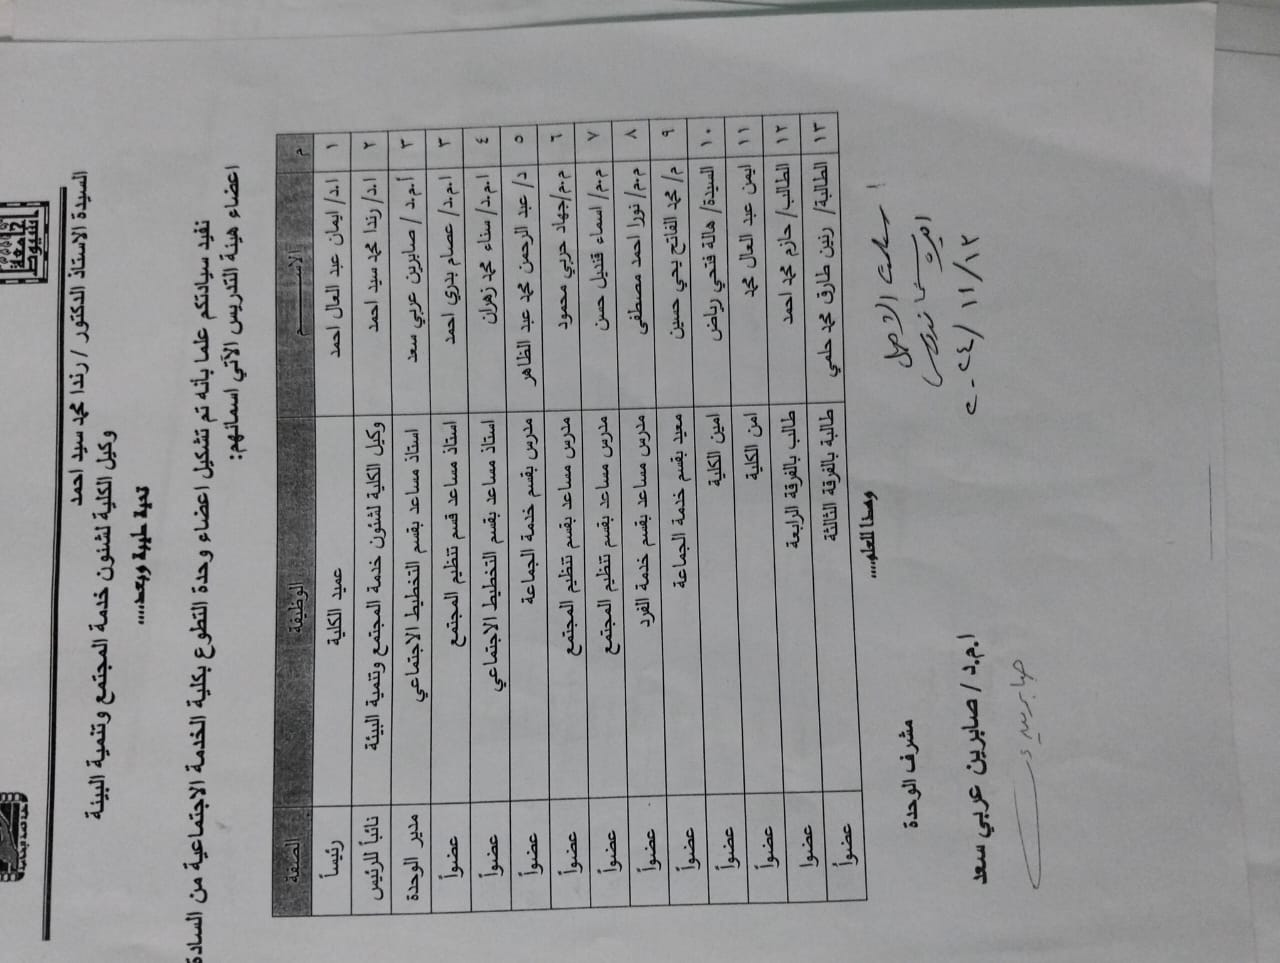 جامعة
اسيوط
السيدة الاستاذ الدكتور / رندا محمد سيد احمد
وكيل الكلية لشئون خدمة المجتمع وتنمية البيئة
تحية طيبة وبعد....
نفيد سيادتكم علما بأنه تم تشكيل اعضاء وحدة التطوع بكلية الخدمة الاجتماعية من السادة
اعضاء هيئة التدريس الآتي اسمائهم:
م الاســـــم الوظيفة الصفة
١ ا.د/ ايمان عبد العال احمد عميد الكلية رئيساً
٢ ا.د/ رندا محمد سيد احمد وكيل الكلية لشئون خدمة المجتمع وتنمية البيئة نائباً للرئيس
٣ أ.م.د / صابرين عربي سعد استاذ مساعد بقسم التخطيط الاجتماعي مدير الوحدة
٣ ا.م.د/ عصام بدري احمد استاذ مساعد قسم تنظيم المجتمع عضواً
٤ ا.م.د/ سناء محمد زهران استاذ مساعد بقسم التخطيط الاجتماعي عضواً
٥ د/ عبد الرحمن محمد عبد الظاهر مدرس بقسم خدمة الجماعة عضواً
٦ م.م/جهاد حربي محمود مدرس مساعد بقسم تنظيم المجتمع عضواً
٧ م.م/ اسماء قنديل حسن مدرس مساعد بقسم تنظيم المجتمع عضواً
٨ م.م/ نورا احمد مصطفى مدرس مساعد بقسم خدمة الفرد عضواً
٩ م/ محمد الفاتح يحي حسين معيد بقسم خدمة الجماعة عضواً
١٠ السيدة/ هالة فتحي رياض امين الكلية عضواً
١١ ايمن عبد العال محمد امن الكلية عضواً
١٢ الطالب/ حازم محمد احمد طالب بالفرقة الرابعة عضوا
١٣ الطالبة/ رنين طارق محمد حلمي طالبة بالفرقة الثالثة عضواً
وهذا للعلم....
مشرف الوحدة
ا.م.د / صابرين عربي سعد
صابرين
الاصل
٢٠٢٤/ ١١/١٢